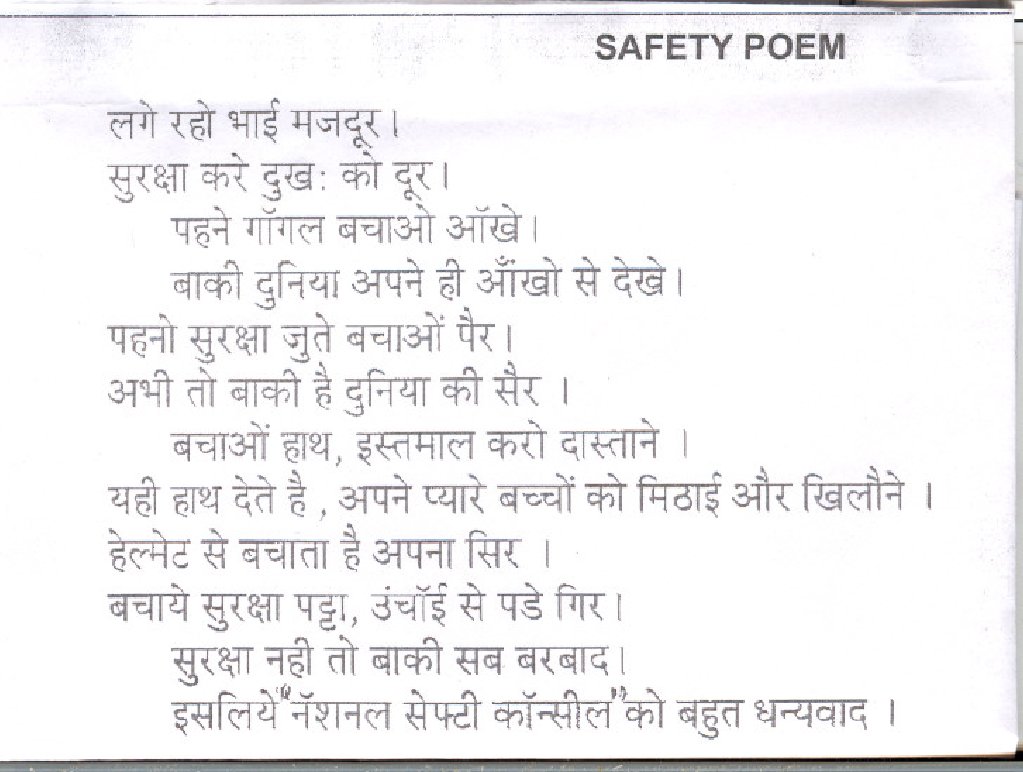 SAFETY POEM
लगे रहो भाई मजदूर।
सुरक्षा करे दुखः को दूर।
पहने गॉगल बचाओ ऑखे।
बाकी दुनिया अपने ही ऑंखो से देखे।
पहनो सुरक्षा जुते बचाओं पैर।
अभी तो बाकी है दुनिया की सैर ।
बचाओं हाथ, इस्तमाल करो दास्ताने ।
यही हाथ देते है , अपने प्यारे बच्चों को मिठाई और खिलौने ।
हेल्मेट से बचाता है अपना सिर ।
बचाये सुरक्षा पट्टा, उंचॉई से पडे गिर।
सुरक्षा नही तो बाकी सब बरबाद।
इसलिये "नॅशनल सेफ्टी कॉन्सील" को बहुत धन्यवाद ।